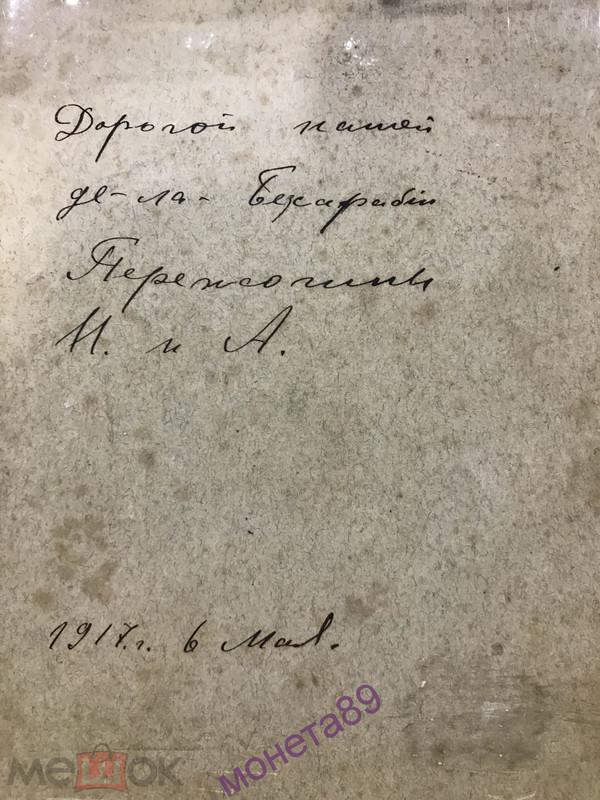 Дорогой нашей
де-ла-Бехарабіи
Пережогины
И. и А.
1917.г. 6 Мая.
монета89
мешок